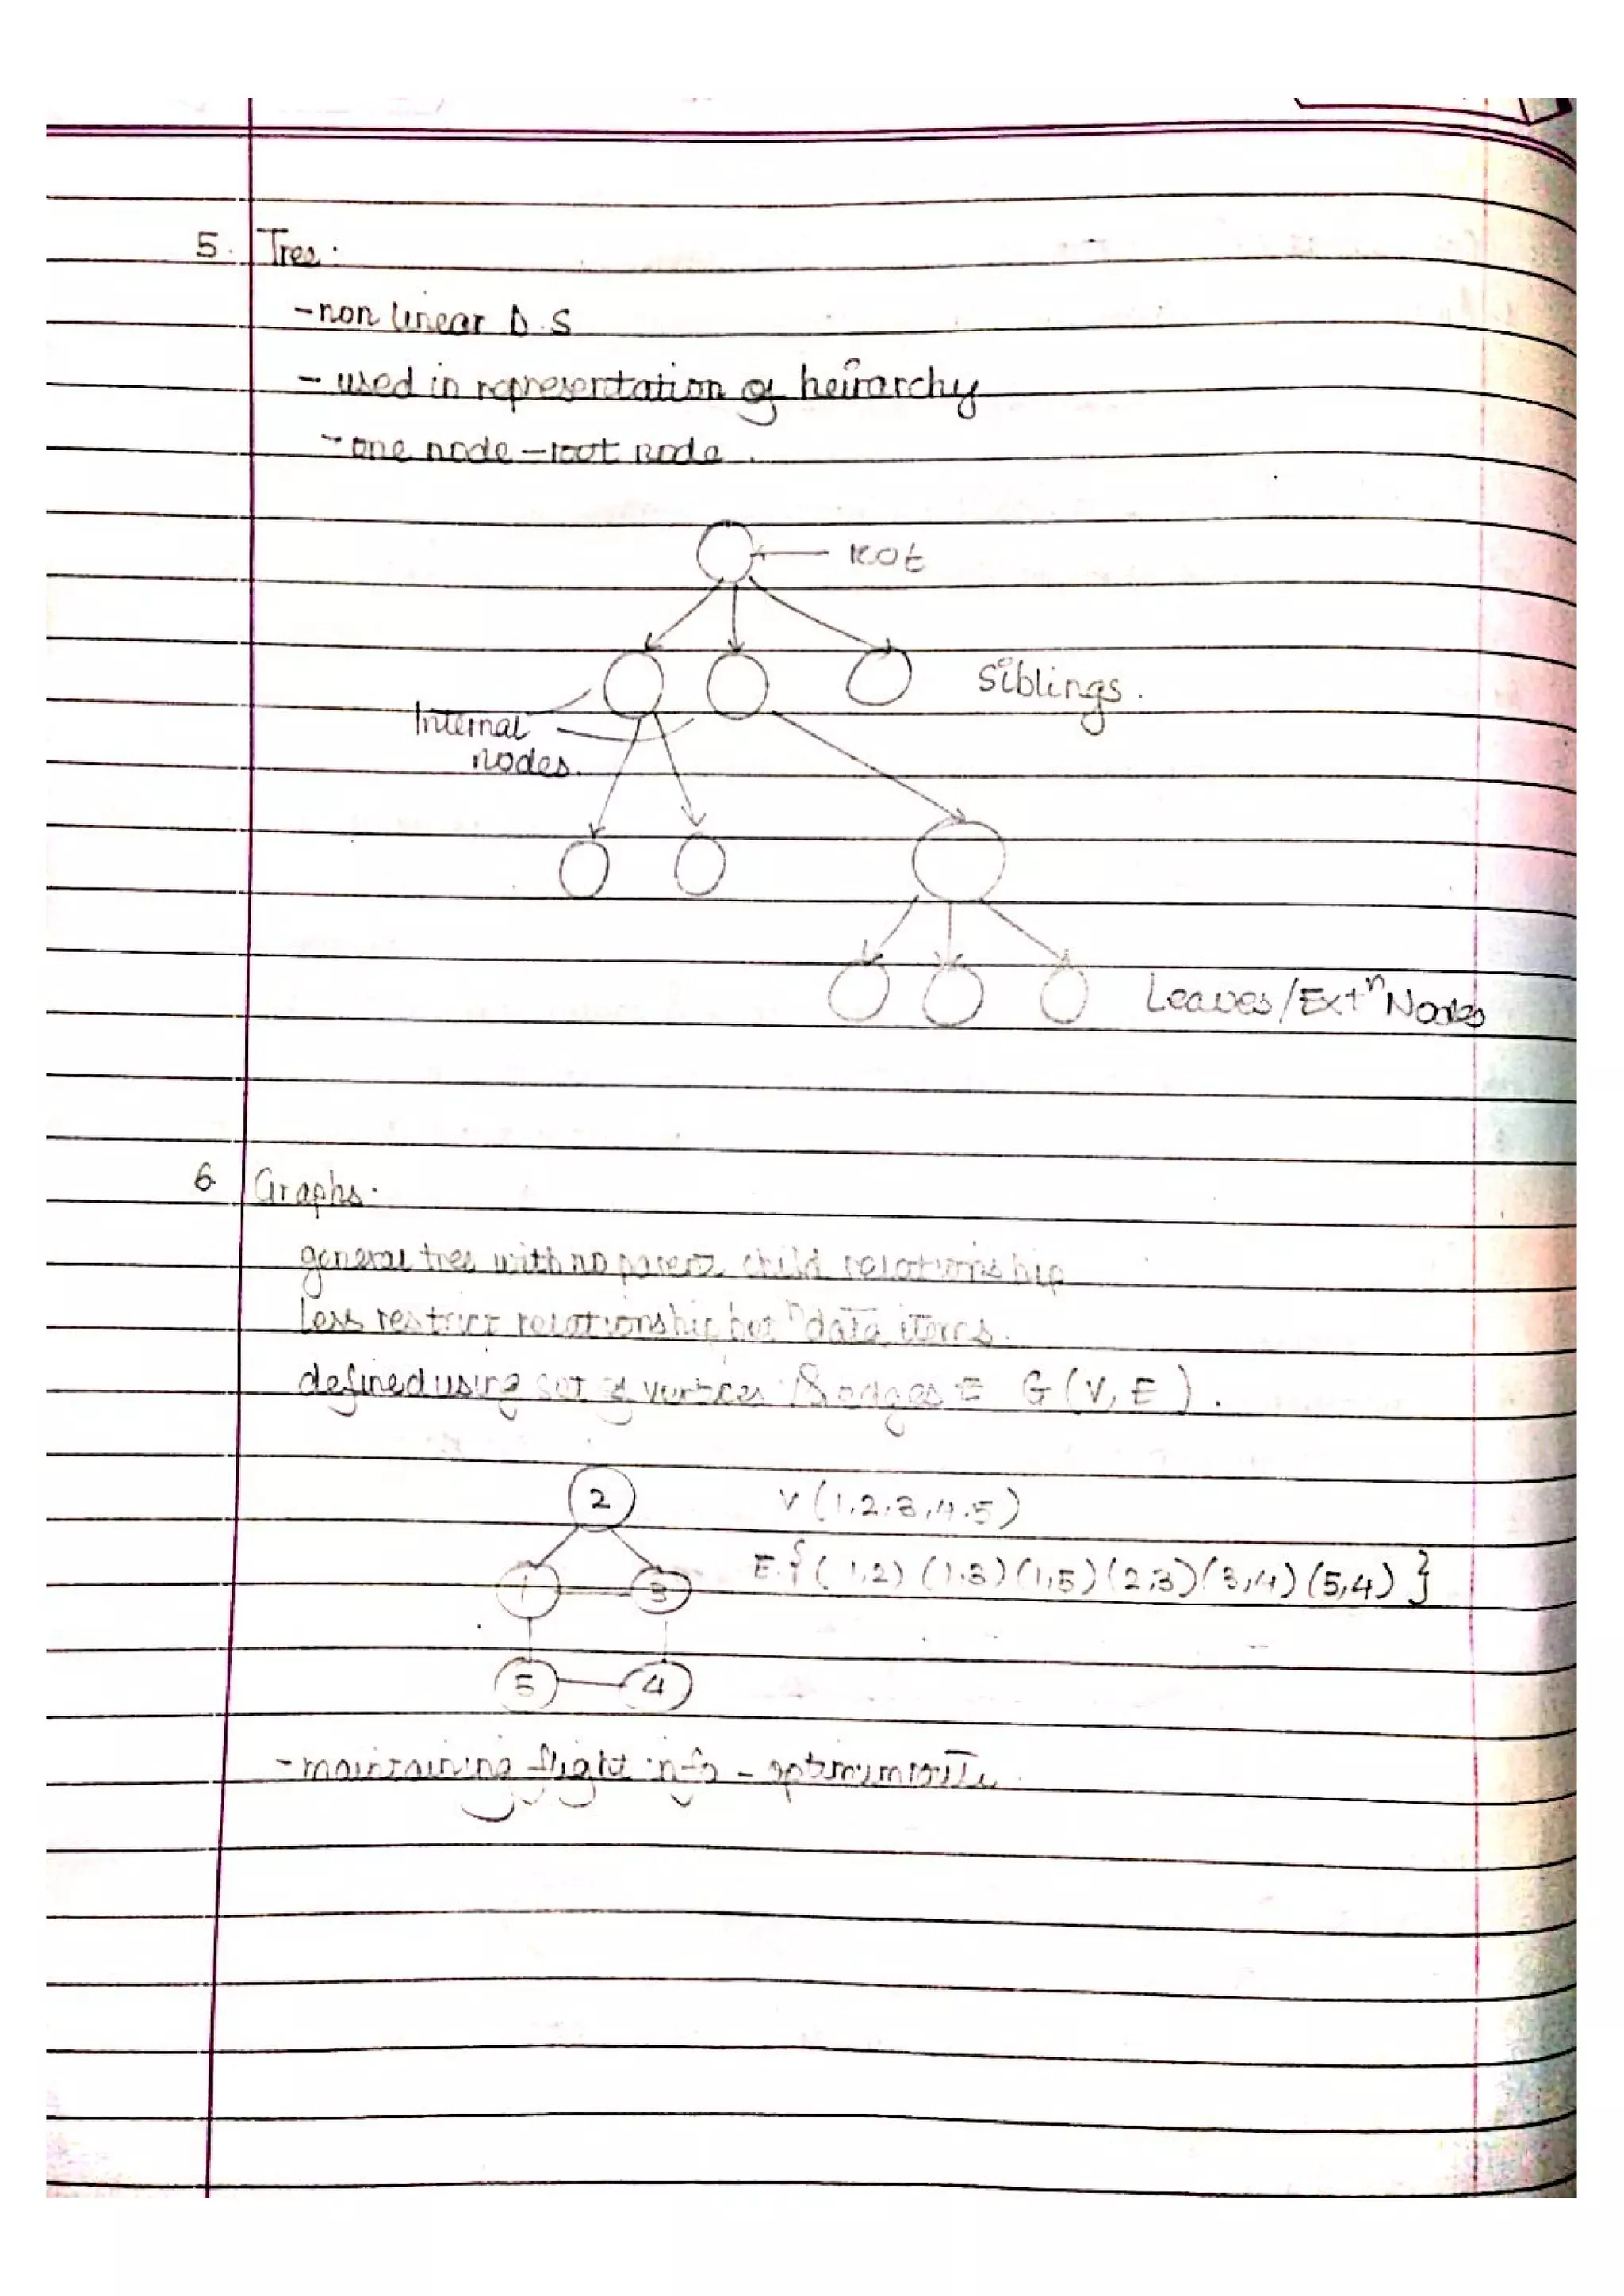 5. Tree:
- non linear D.S
- used in representation of heirarchy
- one node - root node.
root
Siblings.
Internal
nodes.
Leaves/Extⁿ Nodes
6 Graphs:
general tree with no parent child relationship
less restrict relationship betⁿ data items.
defined using set of vertices & edges E G(V, E).
2
V (1,2,3,4,5)
1 3
E {(1,2) (1,3) (1,5) (2,3) (3,4) (5,4)}
5 4
- maintaining flight info - optimum